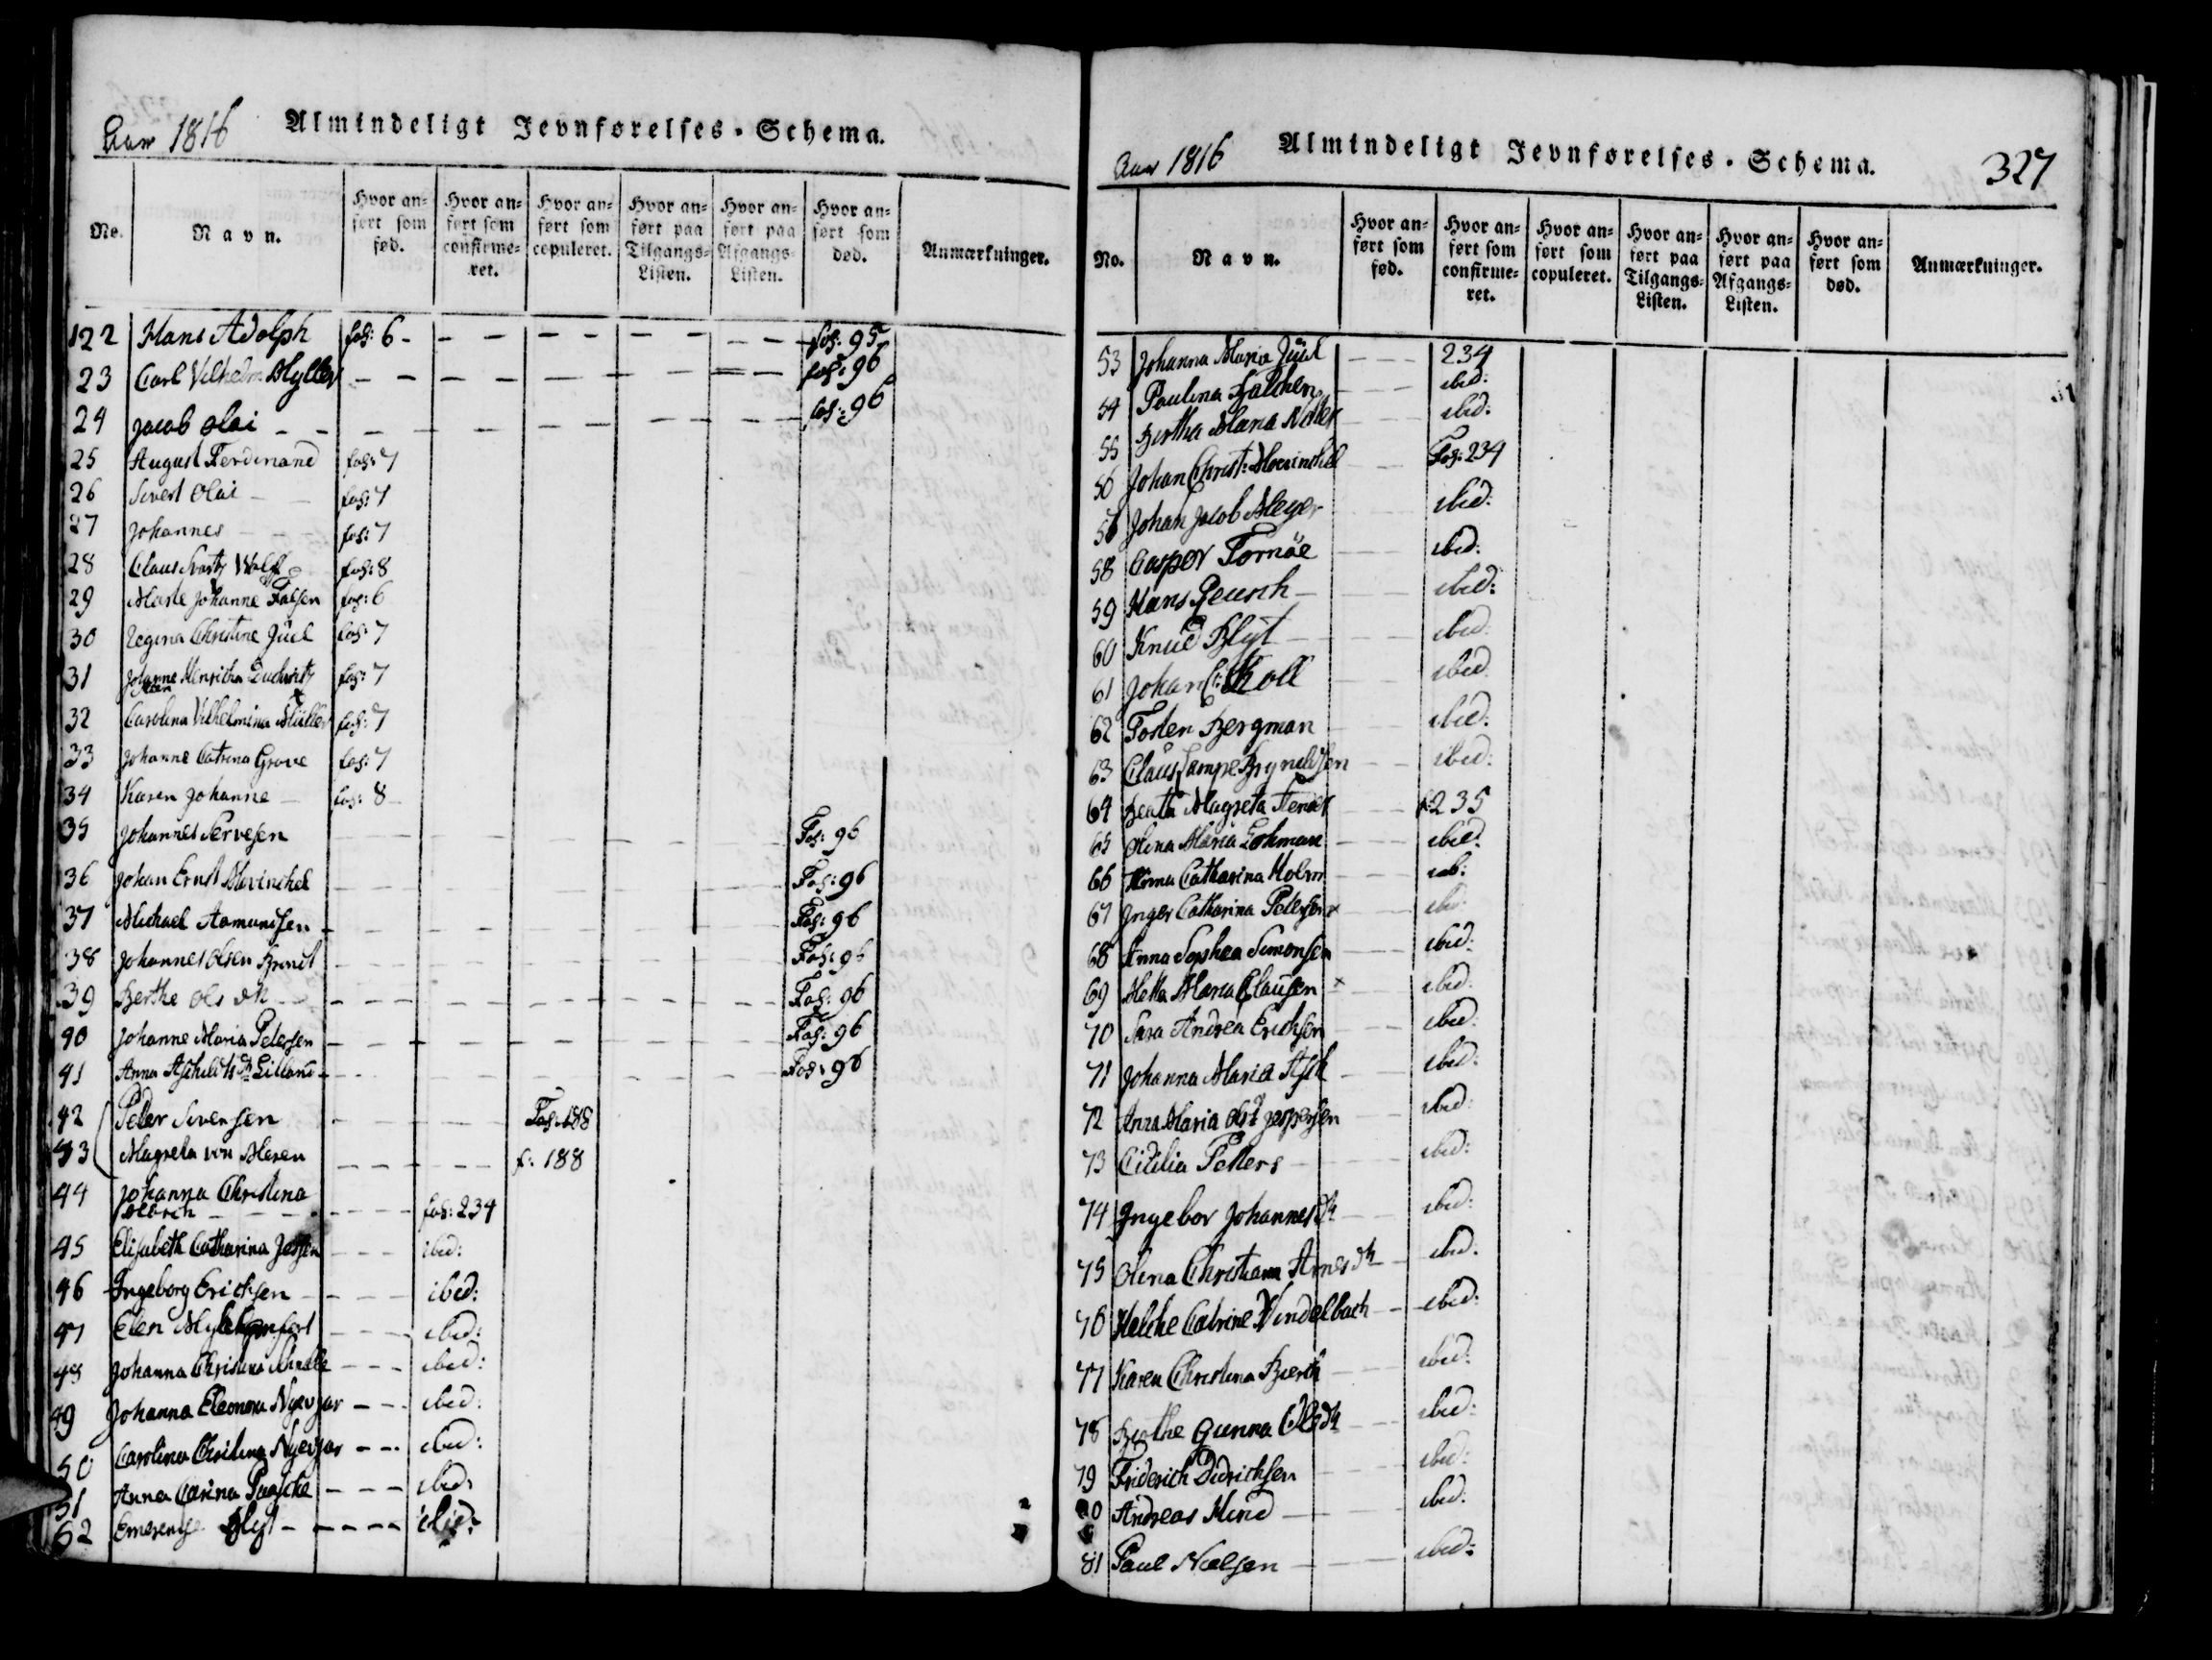 Aar 1816 Almindeligt Jevnførelses-Schema.
No. Navn. Hvor anført som fød. Hvor anført som confirmeret. Hvor anført som copuleret. Hvor anført paa Tilgangs-Listen. Hvor anført paa Afgangs-Listen. Hvor anført som død. Anmærkninger.
122 Hans Adolph fol: 6 fol: 95
23 Carl Vilhelm Myller fol: 96
24 Jacob Olai fol: 96
25 August Ferdinand fol: 7
26 Sivert Olai fol: 7
27 Johannes fol: 7
28 Claus Svartz fol: 8
29 Marte Johanne Falsen fol: 6
30 Regina Christine Juel fol: 7
31 Johanne Henricha fol: 7
32 Carolina Vilhelmina Müller fol: 7
33 Johanne Catrina Grove fol: 7
34 Karen Johanne fol: 8
35 Johannes Fol: 96
36 Johan Ernst Fol: 96
37 Michael Aamundsen Fol: 96
38 Johannes Olsen Fol: 96
39 Berthe Ols dtr Fol: 96
40 Johanne Maria Petersen Fol: 96
41 Anna Fol: 96
42 Peder Svensen Fol: 188
43 Magreta von Meren f: 188
44 Johanna Christina fol: 234
45 Elisabeth Catharina ibid:
46 Ingeborg Erichsen ibid:
47 Elen ibid:
48 Johanna Christina ibid:
49 Johanna Eleonora ibid:
50 Carolina Christina ibid:
51 Anna Carina Paaske ibid:
52 Emerentse Blyt ibid:
Aar 1816 Almindeligt Jevnførelses-Schema. 327
No. Navn. Hvor anført som fød. Hvor anført som confirmeret. Hvor anført som copuleret. Hvor anført paa Tilgangs-Listen. Hvor anført paa Afgangs-Listen. Hvor anført som død. Anmærkninger.
53 Johanna Maria Juel 234
54 Paulina ibid:
55 Bertha Maria ibid:
56 Johan Christ: Fol: 234
56 Johan Jacob Meyer ibid:
58 Casper Tornöe ibid:
59 Hans Reusch ibid:
60 Knud Blyt ibid:
61 Johan C: Koll ibid:
62 Tosten Bergman ibid:
63 Claus Lampe Brynildsen ibid:
64 Beata Magreta f: 235
65 Olena Maria Lohman ibid:
66 Anna Catharina Holm
67 Inger Catharina Petersen ibid:
68 Anna Sophea Simonsen ibid:
69 Metta Maria Clausen × ibid:
70 Sara Andrea Erichsen ibid:
71 Johanna Maria Ask ibid:
72 Anna Maria Jespersen ibid:
73 Cicilia Petters ibid:
74 Ingebor Johannes dtr ibid:
75 Olena Christiana Arnes dtr ibid:
76 Helche Catrine Vindelbach ibid:
77 Karen Christina ibid:
78 Berthe Gunna Ols dtr ibid:
79 Friderich Didrichsen ibid:
80 Andreas Mine ibid:
81 Paul Nielsen ibid: